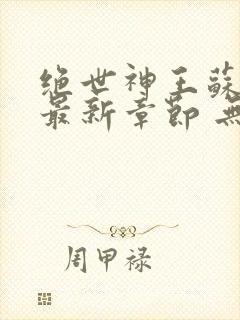 绝世神王蘇
最新章節 無
周甲禄